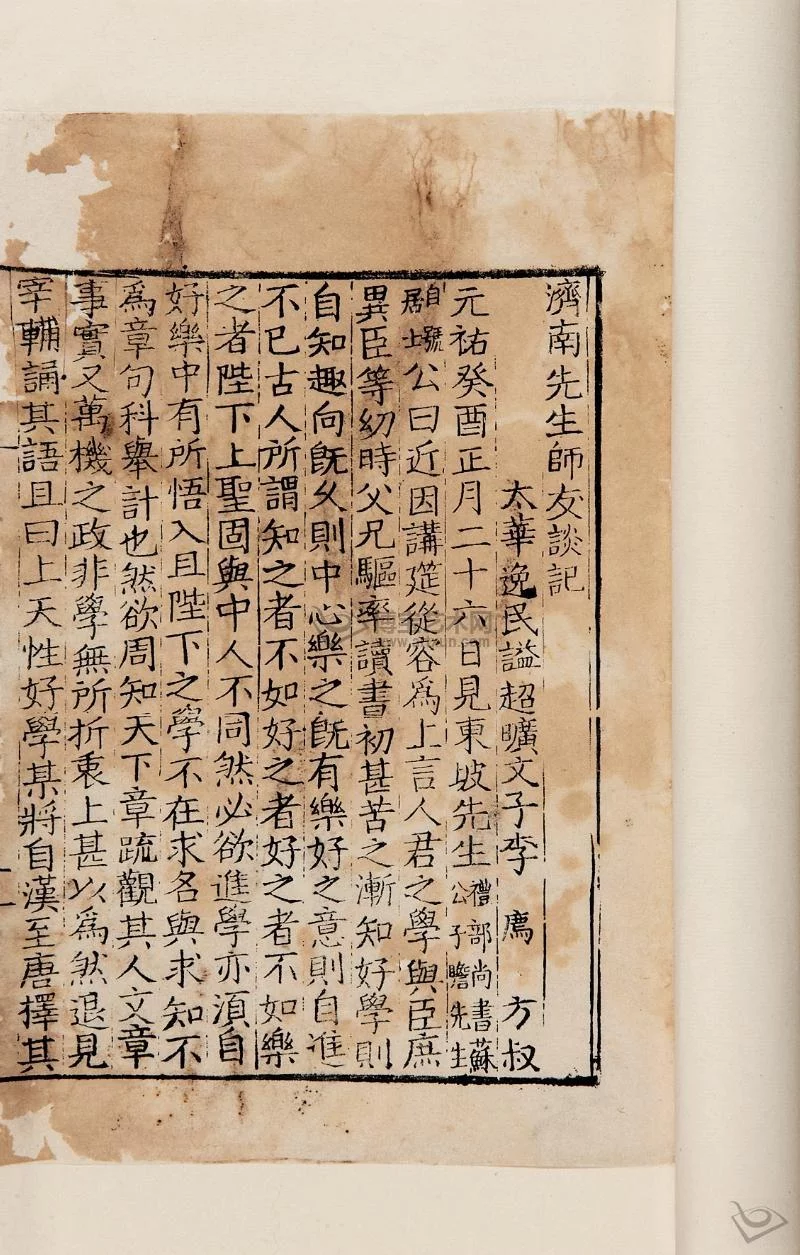 濟南先生師友談記
太華逸民謚超曠文子李廌方叔
元祐癸酉正月二十六日見東坡先生禮部尚書蘇公子瞻先生
自號居士公曰近因講筵從容爲上言人君之學與臣庶
異臣等幼時父兄驅率讀書初甚苦之漸知好學則
自知趣向旣久則中心樂之旣有樂好之意則自進
不已古人所謂知之者不如好之者好之者不如樂
之者陛下上聖固與中人不同然必欲進學亦湏自
好樂中有所悟入且陛下之學不在求名與求知不
爲章句科舉計也然欲周知天下章疏觀其人文章
事實又萬機之政非學無所折衷上甚以爲然退見
宰輔誦其語且曰上天性好學某將自漢至唐擇其